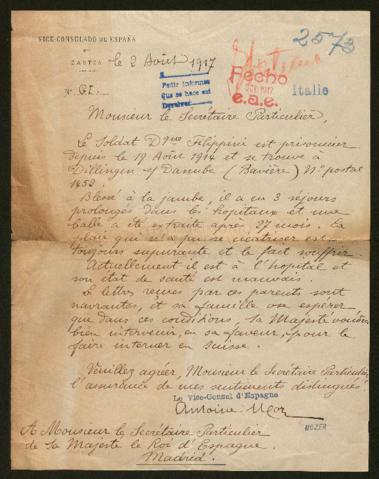 VICE-CONSULADO DE ESPAÑA
BASTIA
le 2 Août 1917
2573
Pedir informes
Que se hace est
Fecho
1917
e.a.e.
Italie
Nº 61.
Monsieur le Secrétaire Particulier,
Le Soldat Dque Filippini est prisonnier
depuis le 19 Août 1914 et se trouve à
Dillingen s/ Danube (Bavière) Nº postal
1452.
Blessé à la jambe, il a eu 3 séjours
prolongés dans les hôpitaux et une
balle a été extraite après 27 mois. La
plaie qui n'a pu se cicatriser est
toujours supurante et le fait souffrir
Actuellement il est à l'hopital et
son état de santé est mauvais.
Le lettres reçues par ces parents sont
navrantes, et sa famille ose espérer
que dans ces conditions, Sa Majesté voudra
bien intervenir, en sa faveur, pour le
faire interner en Suisse.
Veuillez agréer, Monsieur le Secrétaire Particulier,
l'assurance de mes sentiments distingués
Le Vice-Consul d'Espagne
Antoine Mozer
MOZER
A Monsieur le Secrétaire Particulier
de Sa Majesté le Roi d'Espagne
Madrid.